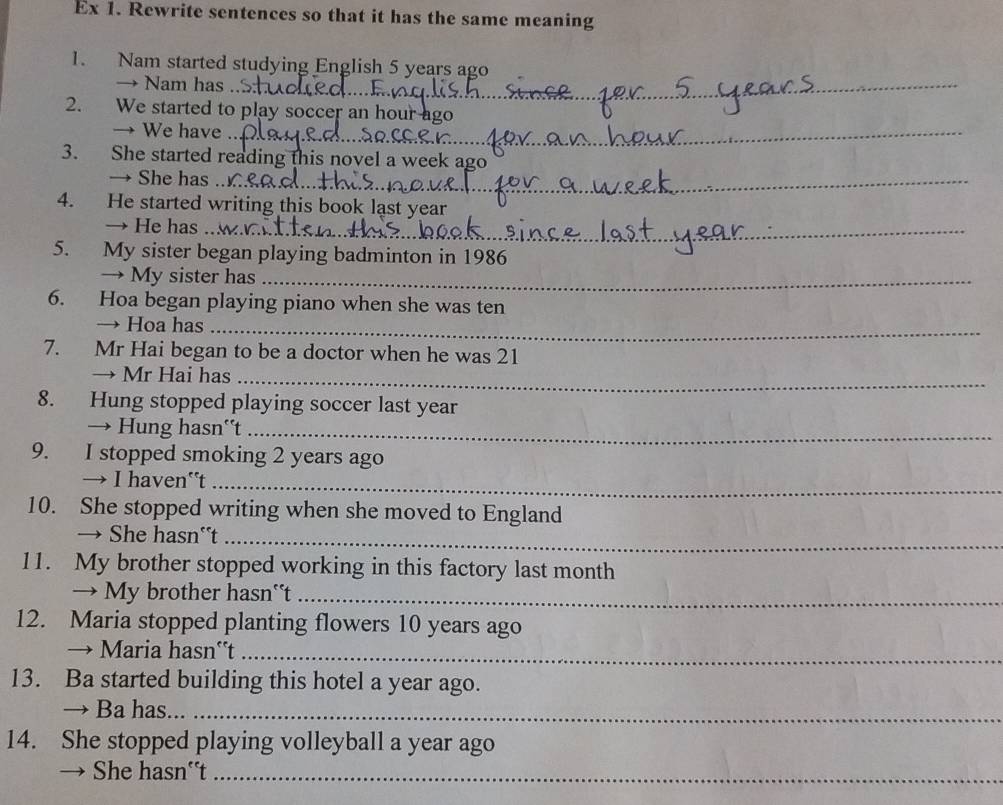 Ex 1. Rewrite sentences so that it has the same meaning
1. Nam started studying English 5 years ago
→ Nam has ..studied....English....since....for....5....years
2. We started to play soccer an hour ago
→ We have ..played...soccer....for an hour
3. She started reading this novel a week ago
→ She has ..read...this novel....for a week
4. He started writing this book last year
→ He has ..written this book since last year.
5. My sister began playing badminton in 1986
→ My sister has
6. Hoa began playing piano when she was ten
→ Hoa has
7. Mr Hai began to be a doctor when he was 21
→ Mr Hai has
8. Hung stopped playing soccer last year
→ Hung hasn‟t
9. I stopped smoking 2 years ago
→ I haven‟t
10. She stopped writing when she moved to England
→ She hasn‟t
11. My brother stopped working in this factory last month
→ My brother hasn‟t
12. Maria stopped planting flowers 10 years ago
→ Maria hasn‟t
13. Ba started building this hotel a year ago.
→ Ba has...
14. She stopped playing volleyball a year ago
→ She hasn‟t